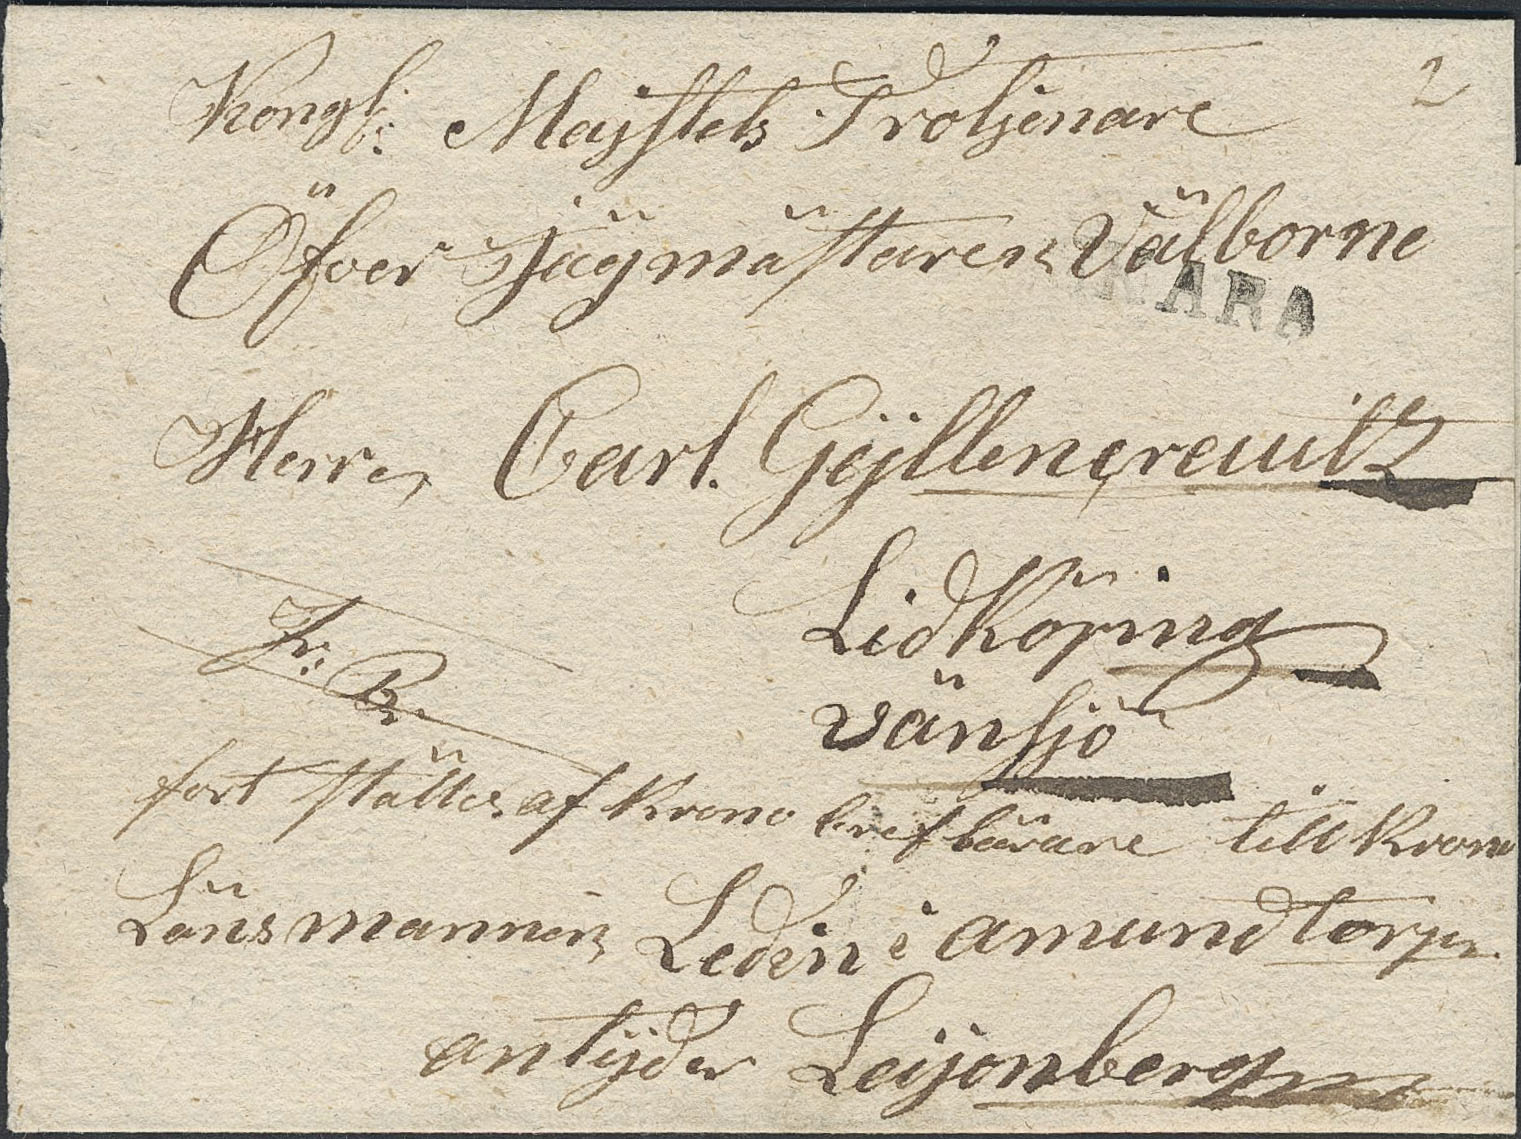 2
Kongl: Majstets Troljenare
Öfver Jägmästaren Välborne
SKARA
Herren Carl. Gÿllencreuitz
Lidköping
Vänsjö
Fr: Br
fort ställes af Krono bref bärare till Krono
Länsmannen Ledin i amundtorp
antÿder Leijonberg